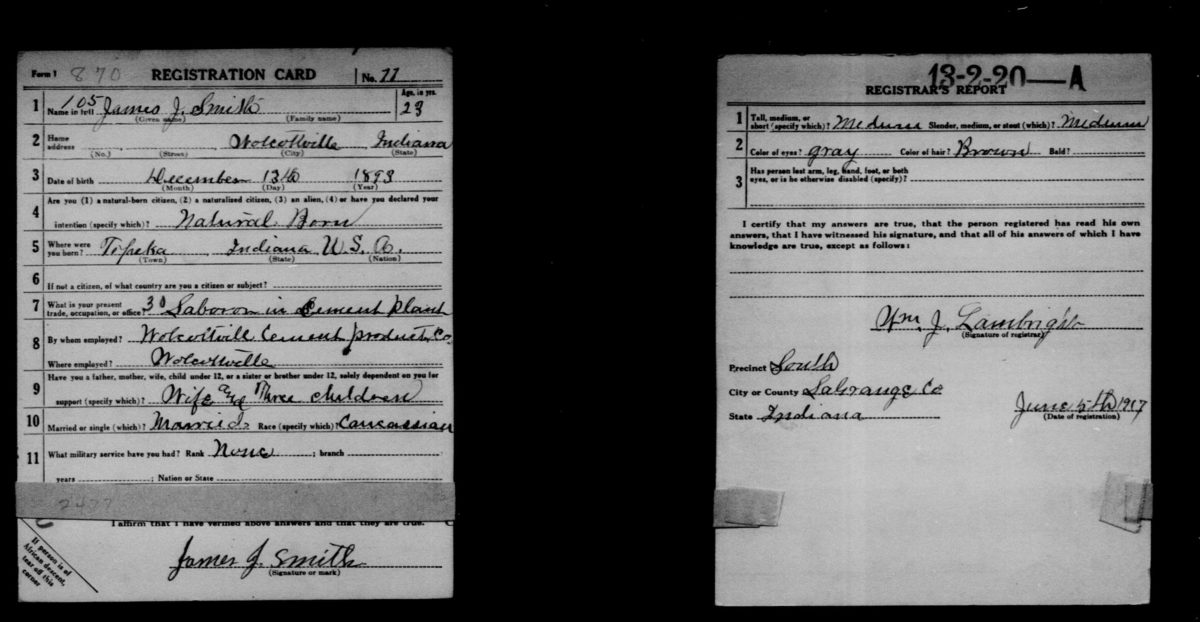 Form 1 870 REGISTRATION CARD No. 77
1 Name in full 105 James J. Smith Age, in yrs. 23
(Given name) (Family name)
2 Home address Wolcottville Indiana
(No.) (Street) (City) (State)
3 Date of birth December 13th 1893
(Month) (Day) (Year)
Are you (1) a natural-born citizen, (2) a naturalized citizen, (3) an alien, (4) or have you declared your
4 intention (specify which)? Natural Born
5 Where were you born? Topeka Indiana U.S.A.
(Town) (State) (Nation)
6 If not a citizen, of what country are you a citizen or subject?
7 What is your present trade, occupation, or office? 30 Laboror in Cement plant
8 By whom employed? Wolcottvill Cement product, Co.
Where employed? Wolcottville
9 Have you a father, mother, wife, child under 12, or a sister or brother under 12, solely dependent on you for
support (specify which)? Wife and Three children
10 Married or single (which)? Married Race (specify which)? Caucassian
11 What military service have you had? Rank None ; branch
years ; Nation or State
2477
I affirm that I have verified above answers and that they are true.
James J. Smith
(Signature or mark)
If person is of
African descent,
tear off this
corner
13-2-20—A
REGISTRAR'S REPORT
1 Tall, medium, or short (specify which)? Medium Slender, medium, or stout (which)? Medium
2 Color of eyes? gray Color of hair? Brown Bald?
3 Has person lost arm, leg, hand, foot, or both
eyes, or is he otherwise disabled (specify)?
I certify that my answers are true, that the person registered has read his own
answers, that I have witnessed his signature, and that all of his answers of which I have
knowledge are true, except as follows:
Wm. J. Lambright
(Signature of registrar)
Precinct South
City or County LaGrange Co
State Indiana
June 5th 1917
(Date of registration)